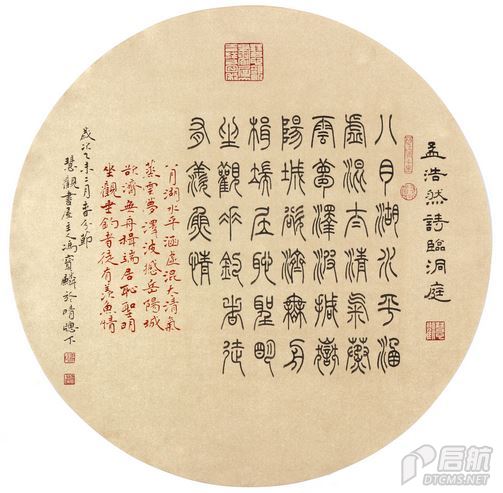 孟浩然詩臨洞庭
八月湖水平涵
虛混太清氣蒸
雲夢澤波撼嶽
陽城欲濟無舟
楫端居恥聖明
坐觀垂釣者徒
有羨魚情
八月湖水平涵虛混太清氣
蒸雲夢澤波撼岳陽城
欲濟無舟楫端居恥聖明
坐觀垂釣者徒有羨魚情
歲次乙未二月春分節
慧觀書屋主人馮寶麟於晴窗下
启航
DTCMS.NET